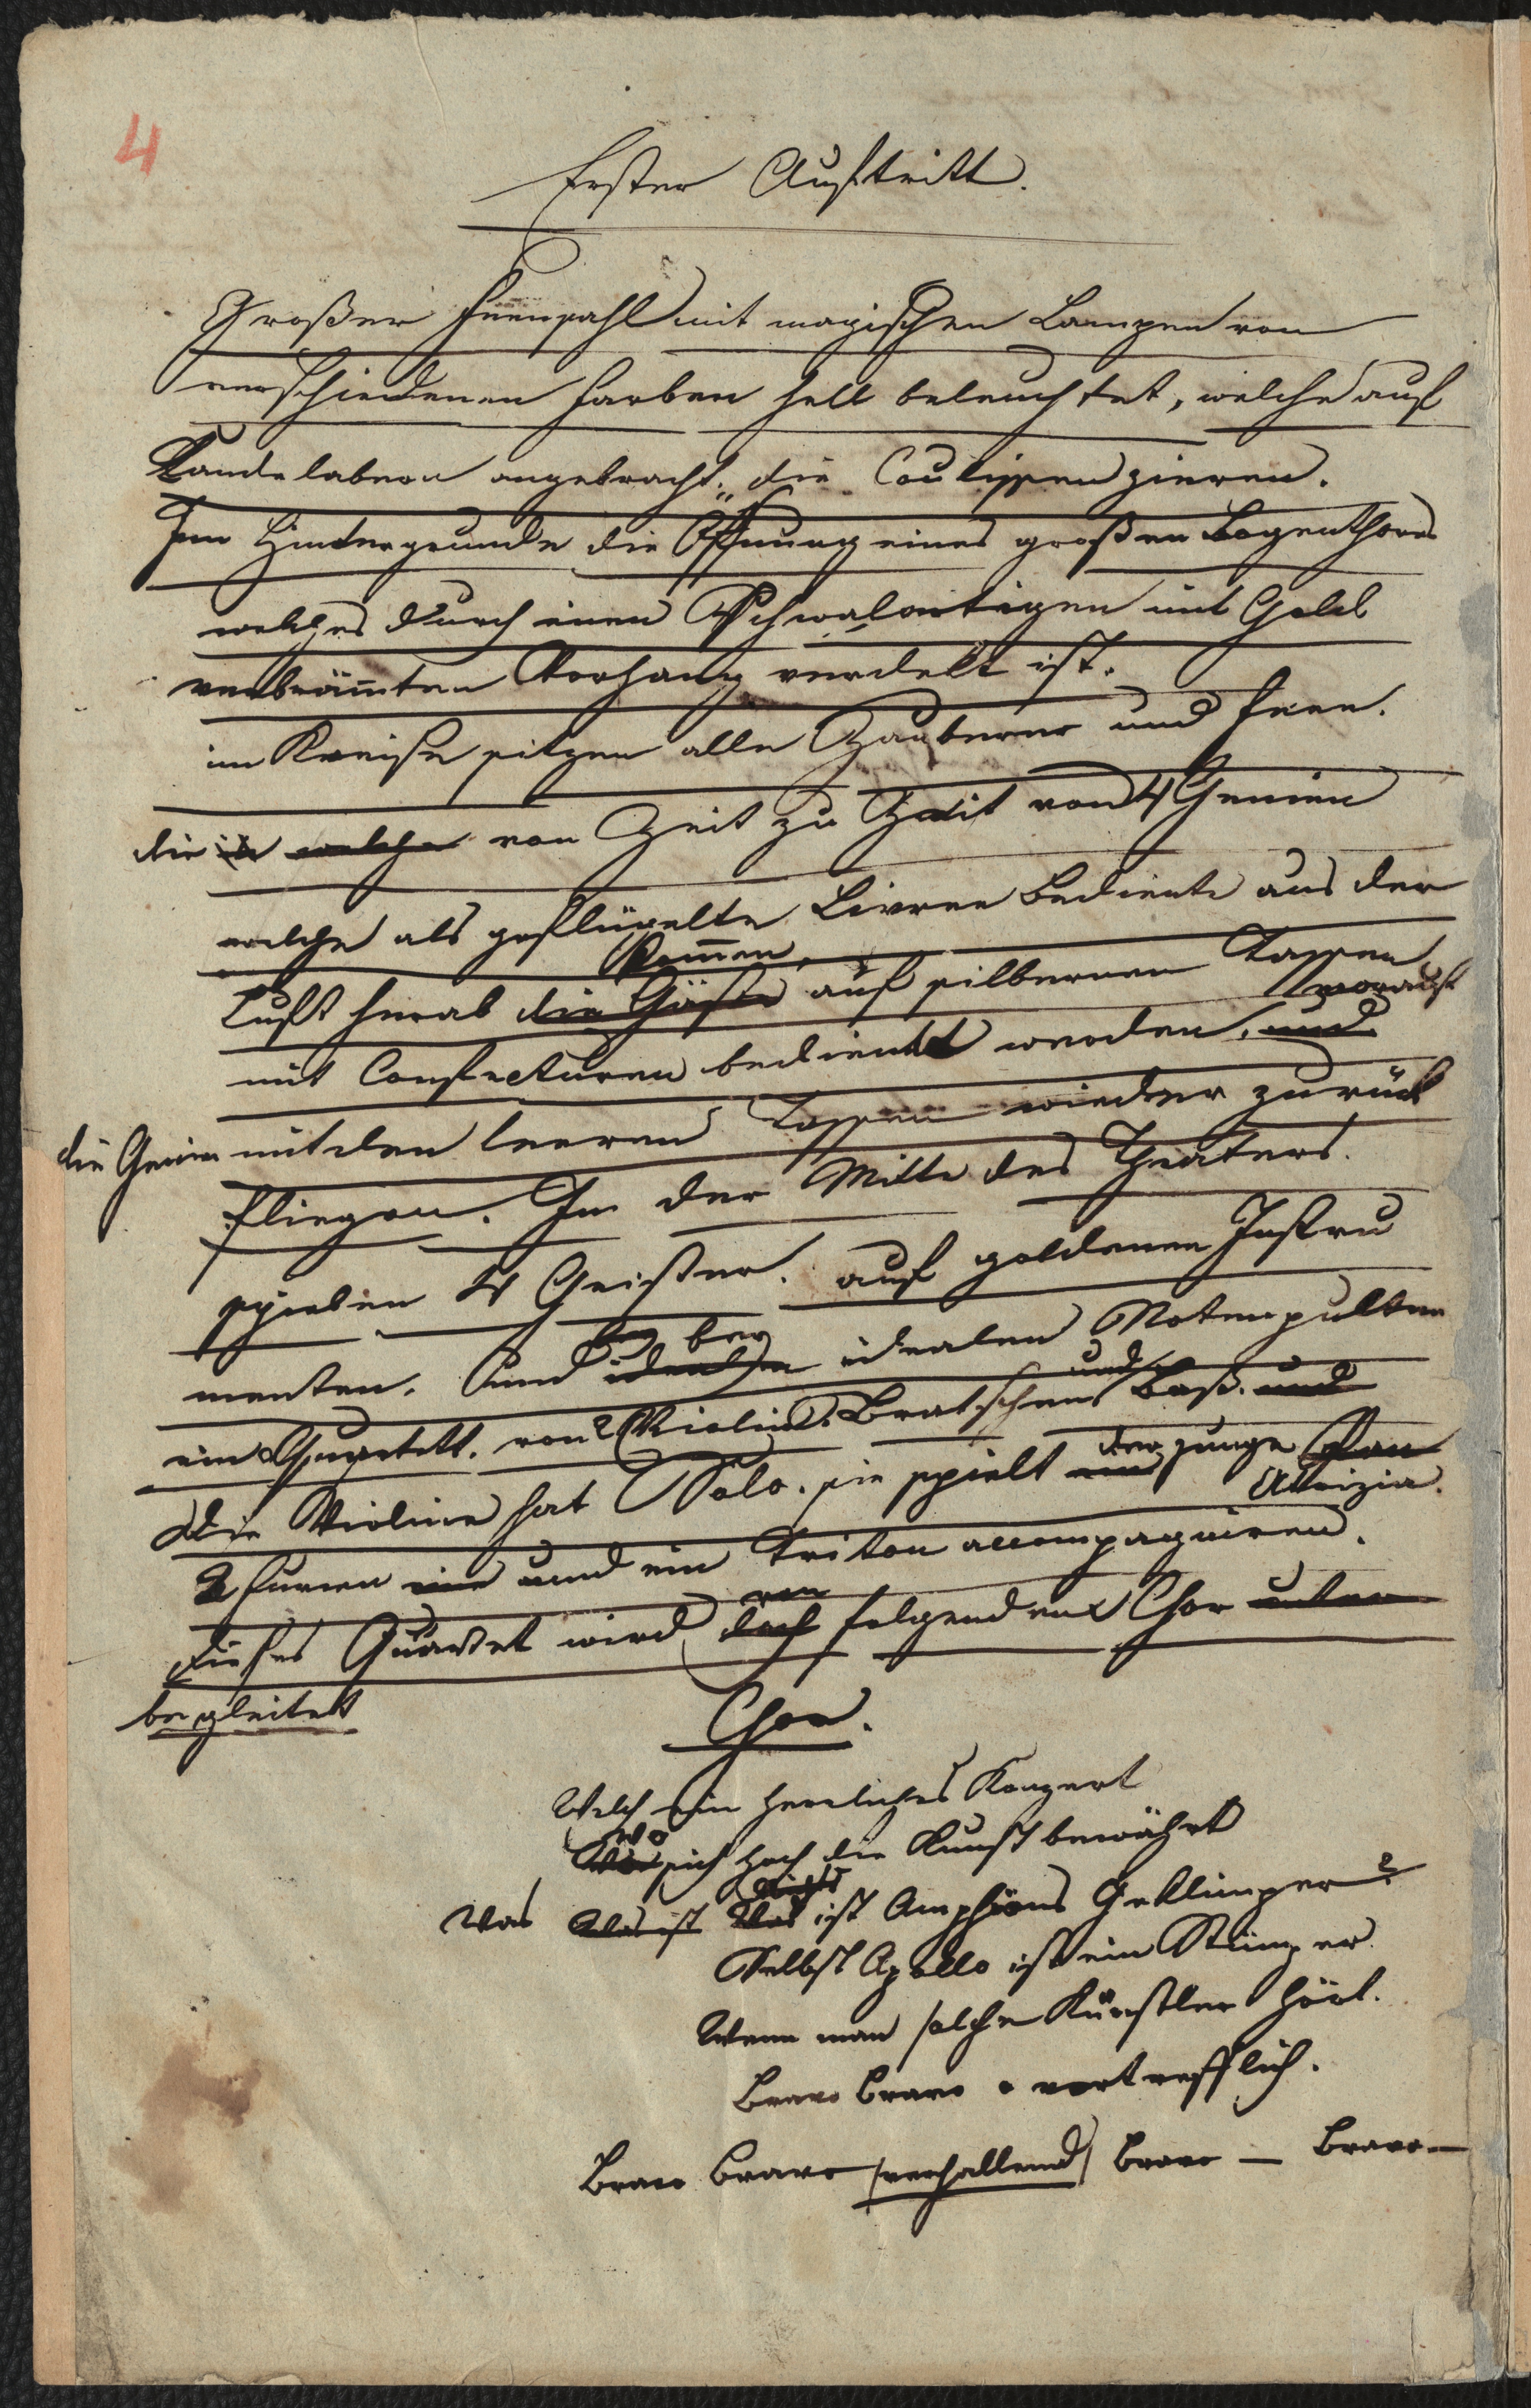 4
Erster Auftritt.
Großer Feensahl mit magischen Lampen von
verschiedenen Farben hell beleuchtet, welche auf
Kandelabern angebracht, die Coulissen zieren.
Im Hintergrunde die Öffnung eines großen Bogenthores
welches durch einen Schwalartigen mit Gold
verbrämten Vorhang verdekt ist.
im Kreise sitzen alle Zauberer und Feen.
die welche von Zeit zu Zeit von 4 Genien
welche als geflügelte Livree Bediente aus der
kommen,
Luft herab die Gäste auf silbernen Tassen
mit Confecturen bedient werden, und worauf
die Genien mit den leeren Tassen wieder zurück
fliegen. In der Mitte des Theaters.
spielen 4 Geister. auf goldenen Instru
menten. und idealen bey idealen Notenpulten
ein Quartett. von 2 Violin. Bratschen und Baß. und
Die Violine hat Solo. sie spielt der junge Pan
Alrizia.
2 Furien eine und ein Triton accompagniren.
von
Dieses Quartet wird doch folgenden Chor unter
begleitet
Chor.
Welch ein herrliches Konzert
wo
Wie sich hoch die Kunst bewährt
nichts
Was Was ist Was ist Amphions Geklimper?
Selbst Apollo ist ein Stümper
Wenn man solche Künstler hört.
Bravo bravo vortrefflich.
Bravo bravo (verhallend) bravo — bravo—